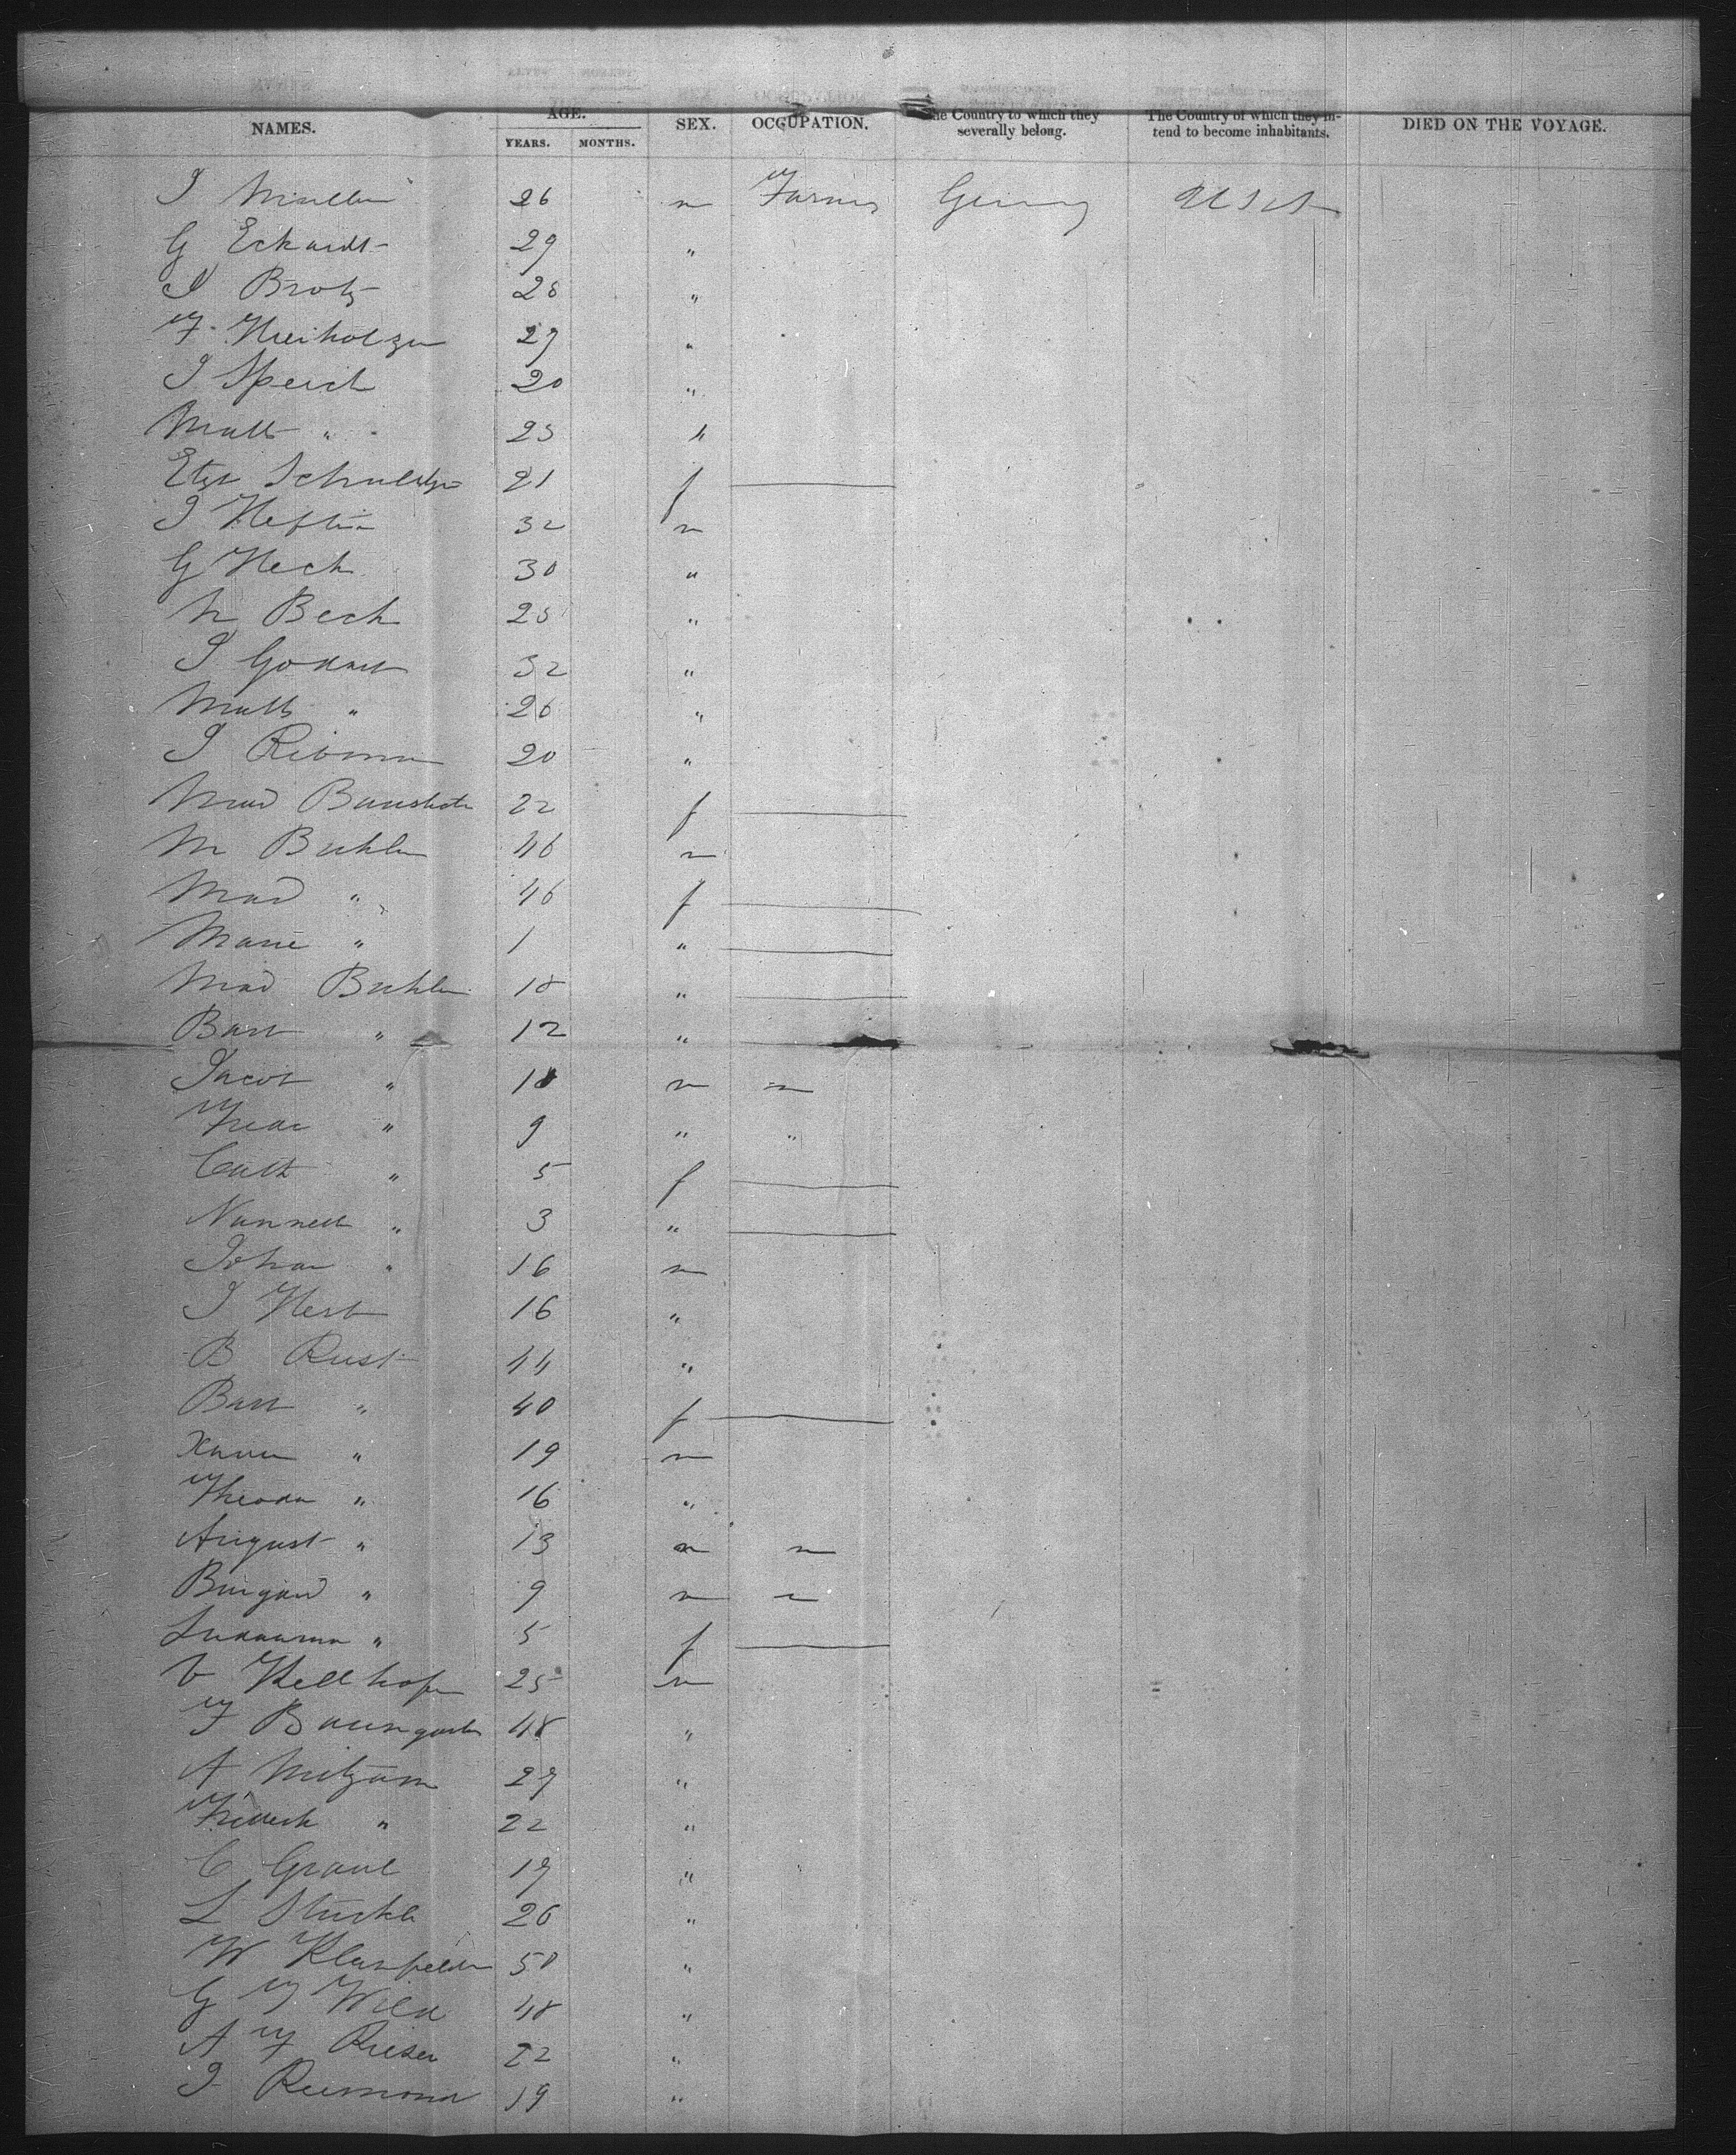 NAMES. AGE. SEX. OCCUPATION. The Country to which they severally belong. The Country of which they intend to become inhabitants. DIED ON THE VOYAGE.
YEARS. MONTHS.
I Muller 26 m Farmer Germy U S A
G Eckardt 29 "
I Brotz 28 "
F. 27 "
I Speich 20 "
Matt " 25 "
21 f
I Hefti 32 m
G Heck 30 "
N Beck 25 "
I Godart 32 "
Matts " 26 "
I 20 "
Mad 22 f
M Buhler 46 m
Mad " 46 f
Marie " 1 "
Mad Buhler 18 "
Barb " 12 "
Jacob " 18 m "
Fredr " 9 " "
Cath " 5 f
Nannett " 3 "
Johan " 16 m
I Herb 16 "
B Rust 44 "
Barb " 40 f
Xaver " 19 m
Theodor " 16 "
August " 13 m "
" 9 m "
" 5 f
V Kellhofer 25 m
F Baumgarten 48 "
A 27 "
" 22 "
C Graul 19 "
L Stuckle 26 "
W 50 "
G F Wild 48 "
A F Rieser 22 "
I 19 "